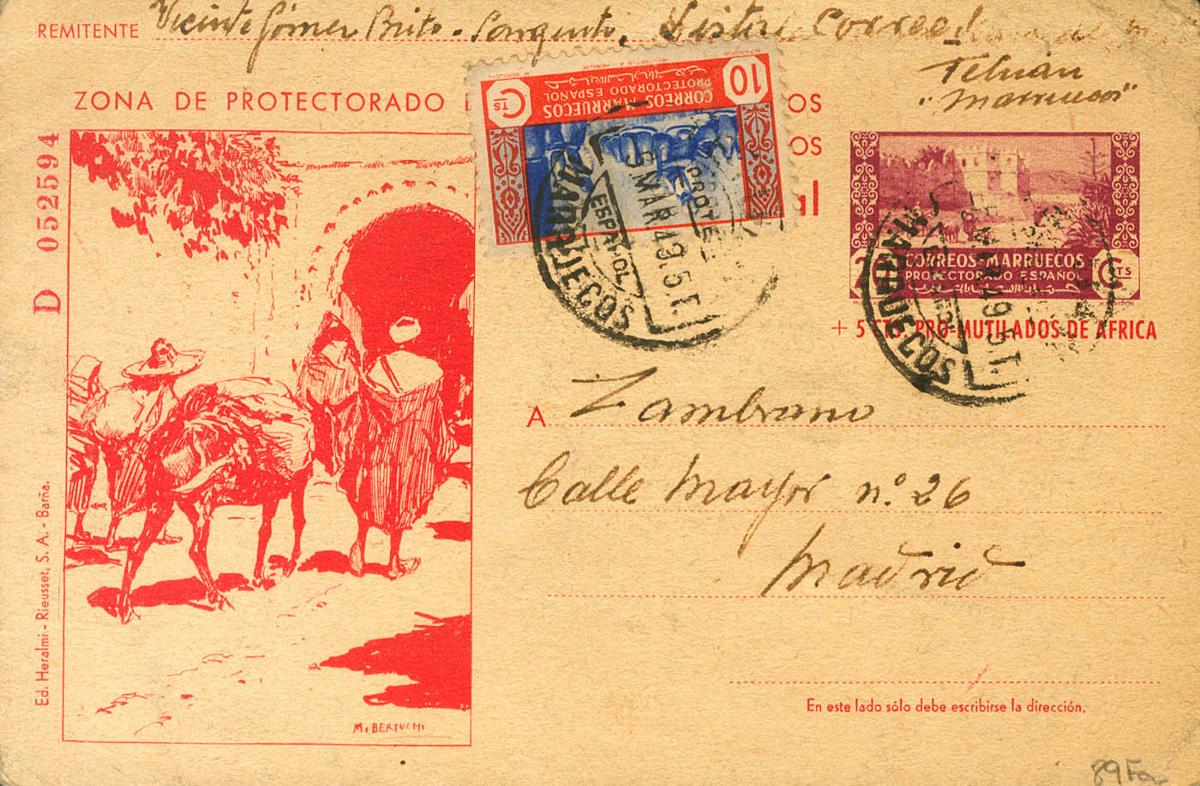 REMITENTE Vicente Gómez Brito - Sargento, Lista Correo
Tetuán
"Marruecos"
ZONA DE PROTECTORADO OS
OS
al
D 052594
10 Cts
CORREOS-MARRUECOS
PROTECTORADO ESPAÑOL
MARRUECOS
ESPAÑOL
5 MAR 49.5.T
CORREOS-MARRUECOS
PROTECTORADO ESPAÑOL
2 Cts
MARRUECOS
MAR 49 5.T.
+ 5 CTS PRO-MUTILADOS DE AFRICA
A Zambrano
Calle Mayor nº 26
Madrid
En este lado sólo debe escribirse la dirección.
M. BERTUCHI
Ed. Heralmi - Rieusset, S. A. - Barña.